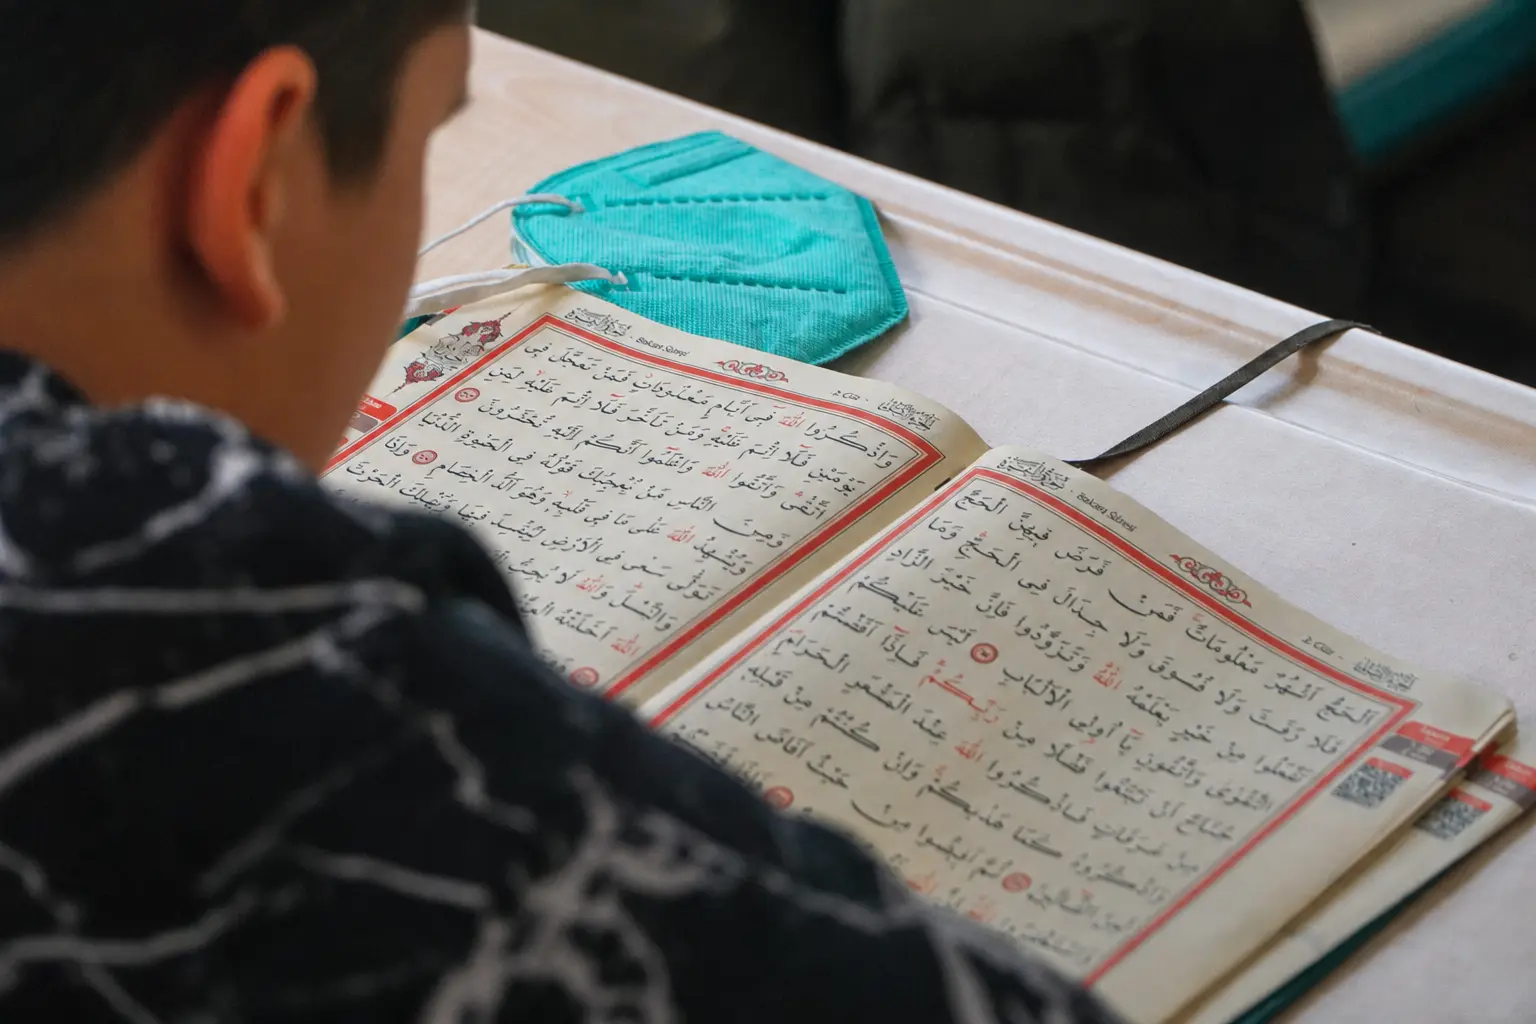 Bakara Suresi
2. Cüz
اَلْحَجُّ اَشْهُرٌ مَعْلُومَاتٌ فَمَنْ فَرَضَ فِيهِنَّ الْحَجَّ
فَلَا رَفَثَ وَلَا فُسُوقَ وَلَا جِدَالَ فِي الْحَجِّ وَمَا
تَفْعَلُوا مِنْ خَيْرٍ يَعْلَمْهُ اللّٰهُ وَتَزَوَّدُوا فَاِنَّ خَيْرَ الزَّادِ
التَّقْوٰى وَاتَّقُونِ يَا اُولِي الْاَلْبَابِ لَيْسَ عَلَيْكُمْ
جُنَاحٌ اَنْ تَبْتَغُوا فَضْلًا مِنْ رَبِّكُمْ فَاِذَا اَفَضْتُمْ
مِنْ عَرَفَاتٍ فَاذْكُرُوا اللّٰهَ عِنْدَ الْمَشْعَرِ الْحَرَامِ
وَاذْكُرُوهُ كَمَا هَدٰيكُمْ وَاِنْ كُنْتُمْ مِنْ قَبْلِهِ
لَمِنَ الضَّالِّينَ ثُمَّ اَفِيضُوا مِنْ حَيْثُ اَفَاضَ النَّاسُ
وَاسْتَغْفِرُوا اللّٰهَ
Bakara Suresi
2. Cüz
وَاذْكُرُوا اللّٰهَ فِي اَيَّامٍ مَعْدُودَاتٍ فَمَنْ تَعَجَّلَ فِي
يَوْمَيْنِ فَلَا اِثْمَ عَلَيْهِ وَمَنْ تَاَخَّرَ فَلَا اِثْمَ عَلَيْهِ لِمَنِ
اتَّقٰى وَاتَّقُوا اللّٰهَ وَاعْلَمُوا اَنَّكُمْ اِلَيْهِ تُحْشَرُونَ
وَمِنَ النَّاسِ مَنْ يُعْجِبُكَ قَوْلُهُ فِي الْحَيٰوةِ الدُّنْيَا
وَيُشْهِدُ اللّٰهَ عَلٰى مَا فِي قَلْبِهِ وَهُوَ اَلَدُّ الْخِصَامِ وَاِذَا
تَوَلّٰى سَعٰى فِي الْاَرْضِ لِيُفْسِدَ فِيهَا وَيُهْلِكَ الْحَرْثَ
وَالنَّسْلَ وَاللّٰهُ لَا يُحِبُّ
اللّٰهَ اَخَذَتْهُ